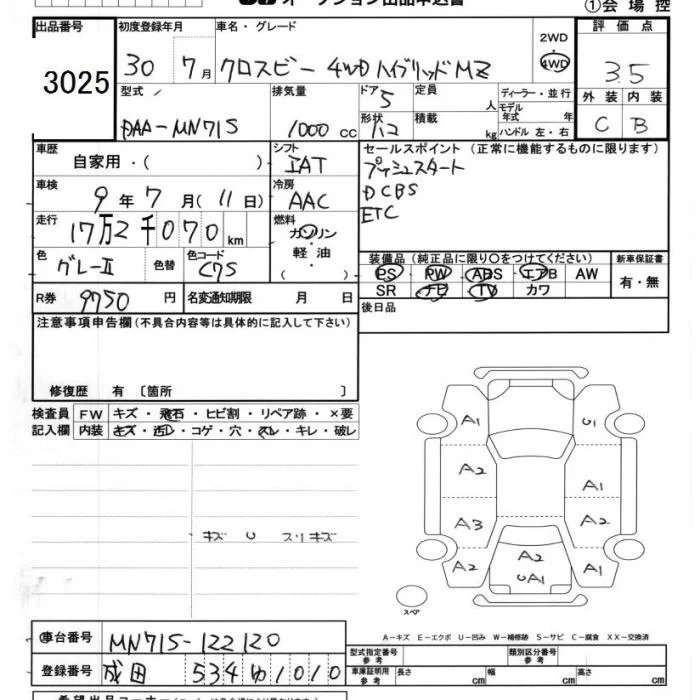 オークション出品申込書 ①会場控
出品番号 初度登録年月 車名・グレード 評価点
3025 30 7月 クロスビー 4WD ハイブリッド MZ 2WD 4WD 3.5
型式 排気量 ドア 定員 ディーラー・並行 外装 内装
DAA-MN71S 1000 cc 5 人 モデル年式 年 C B
形状 ハコ 積載 kg ハンドル 左・右
車歴 シフト セールスポイント (正常に機能するものに限ります)
自家用・( ) IAT プッシュスタート
車検 冷房 DCBS
9年7月(11日) AAC ETC
走行 燃料
17万2千070km ガソリン
色 色替 色コード 軽油
グレーⅡ C7S ( )
装備品(純正品に限り〇をつけてください) 新車保証書
PS PW ABS エアB AW 有・無
SR ナビ TV カワ
R券 9750 円 名変通知期限 月 日 後日品
注意事項申告欄(不具合内容等は具体的に記入して下さい)
修復歴 有 〔箇所 〕
検査員 FW キズ・飛石・ヒビ割・リペア跡・×要
記入欄 内装 キズ・汚レ・コゲ・穴・スレ・キレ・破レ
A1 U1
A2 A1
A3 A2
A2 A2 A1
UA1
キズ U スリキズ
スペア
A-キズ E-エクボ U-凹み W-補修跡 S-サビ C-腐食 XX-交換済
車台番号 MN71S-122120 型式指定番号 参考 類別区分番号 参考
登録番号 成田 534 ゆ 1010 車庫証明用 参考 長さ cm 幅 cm 高さ cm